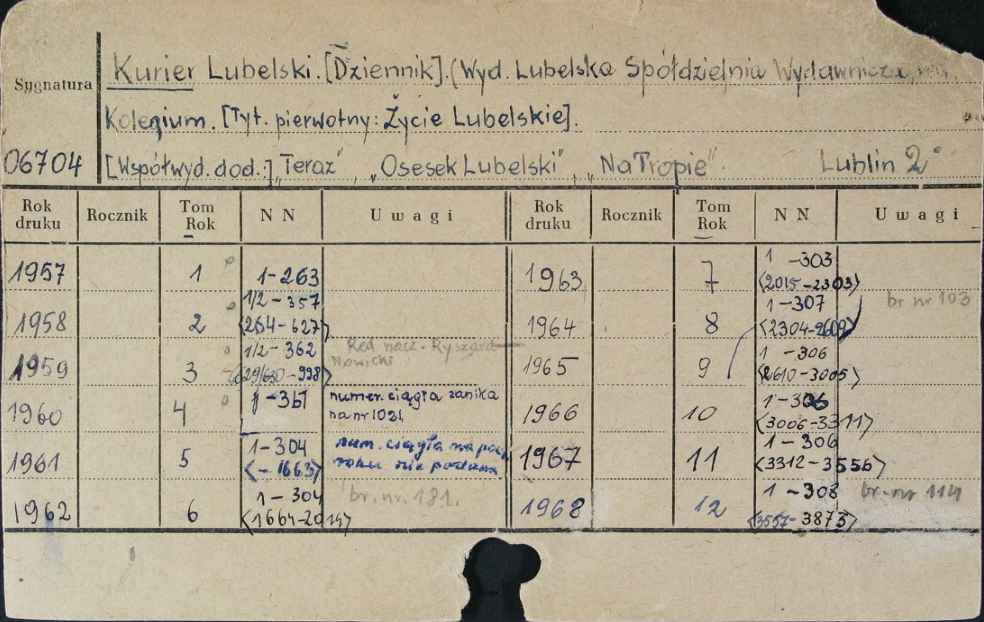 Sygnatura
Kurier Lubelski. [Dziennik]. (Wyd. Lubelska Spółdzielnia Wydawnicza,
Kolegium. [Tyt. pierwotny: Życie Lubelskie].
06704 [Współwyd. dod.:] „Teraz", „Osesek Lubelski", „Na Tropie" Lublin 2°
Rok druku Rocznik Tom Rok NN Uwagi Rok druku Rocznik Tom Rok NN Uwagi
1957 1 1-263 1963 7 1 -303 <2015-2303>
1958 2 1/2-357 <264-627> 1964 8 1-307 <2304-2609> br nr 103
1959 3 1/2-362 -998> Red nacz. Ryszard Nowicki 1965 9 1 -306 <2610-3005>
1960 4 numer. ciągła zanika na nr 1021 1966 10 1-306 <3006-3311>
1961 5 1-304 <-1663> num. ciągła na roku nie podana 1967 11 1-306 <3312-3556>
1962 6 1-304 <1664-2014> br. nr. 181. 1968 12 1-308 <3557-3873> br. nr 114